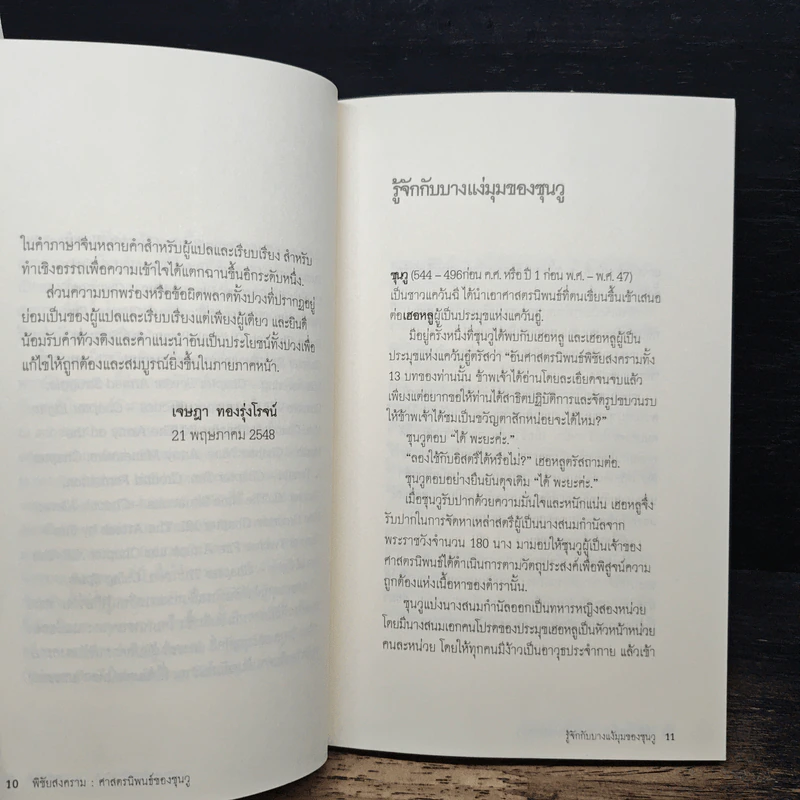 ในคำภาษาจีนหลายคำสำหรับผู้แปลและเรียบเรียง สำหรับ
ทำเชิงอรรถเพื่อความเข้าใจได้แตกฉานขึ้นอีกระดับหนึ่ง.
ส่วนความบกพร่องหรือข้อผิดพลาดทั้งปวงที่ปรากฏอยู่
ย่อมเป็นของผู้แปลและเรียบเรียงแต่เพียงผู้เดียว และยินดี
น้อมรับคำท้วงติงและคำแนะนำอันเป็นประโยชน์ทั้งปวงเพื่อ
แก้ไขให้ถูกต้องและสมบูรณ์ยิ่งขึ้นในภายภาคหน้า.
เจษฎา ทองรุ่งโรจน์
21 พฤษภาคม 2548
10 พิชัยสงคราม : ศาสตรนิพนธ์ของซุนวู
รู้จักกับบางแง่มุมของซุนวู
ซุนวู (544 – 496ก่อน ค.ศ. หรือ ปี 1 ก่อน พ.ศ. – พ.ศ. 47)
เป็นชาวแคว้นฉี ได้นำเอาศาสตรนิพนธ์ที่ตนเขียนขึ้นเข้าเสนอ
ต่อเฮอหลูผู้เป็นประมุขแห่งแคว้นอู่.
มีอยู่ครั้งหนึ่งที่ซุนวูได้พบกับเฮอหลู และเฮอหลูผู้เป็น
ประมุขแห่งแคว้นอู่ตรัสว่า "อันศาสตรนิพนธ์พิชัยสงครามทั้ง
13 บทของท่านนั้น ข้าพเจ้าได้อ่านโดยละเอียดจนจบแล้ว
เพียงแต่อยากขอให้ท่านได้สาธิตปฏิบัติการและจัดรูปขบวนรบ
ให้ข้าพเจ้าได้ชมเป็นขวัญตาสักหน่อยจะได้ไหม?"
ซุนวูตอบ "ได้ พะยะค่ะ."
"ลองใช้กับอิสตรีได้หรือไม่?" เฮอหลูตรัสถามต่อ.
ซุนวูตอบอย่างยืนยันดุจเดิม "ได้ พะยะค่ะ."
เมื่อซุนวูรับปากด้วยความมั่นใจและหนักแน่น เฮอหลูจึง
รับปากในการจัดหาเหล่าสตรีผู้เป็นนางสนมกำนัลจาก
พระราชวังจำนวน 180 นาง มามอบให้ซุนวูผู้เป็นเจ้าของ
ศาสตรนิพนธ์ได้ดำเนินการตามวัตถุประสงค์เพื่อพิสูจน์ความ
ถูกต้องแห่งเนื้อหาของตำรานั้น.
ซุนวูแบ่งนางสนมกำนัลออกเป็นทหารหญิงสองหน่วย
โดยมีนางสนมเอกคนโปรดของประมุขเฮอหลูเป็นหัวหน้าหน่วย
คนละหน่วย โดยให้ทุกคนมีง้าวเป็นอาวุธประจำกาย แล้วเข้า
รู้จักกับบางแง่มุมของซุนวู 11